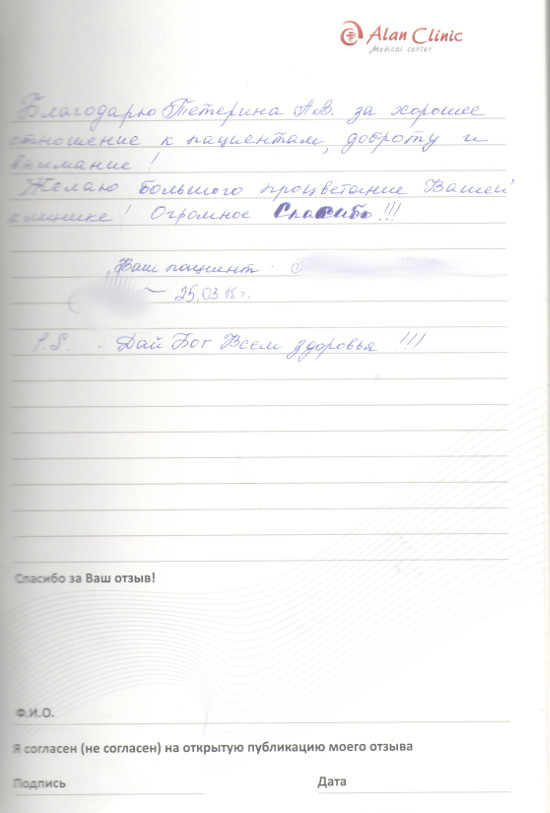 Alan Clinic
Medical center
Благодарю Тетерина А.В. за хорошее
отношение к пациентам, доброту и
внимание!
Желаю большого процветание Вашей
клинике! Огромное Спасибо!!!
Ваш пациент:
25.03.15г.
P.S. : Дай Бог Всем здоровья !!!
Спасибо за Ваш отзыв!
Ф.И.О.
Я согласен (не согласен) на открытую публикацию моего отзыва
Подпись Дата